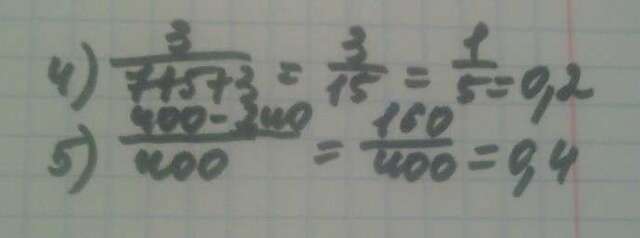 4) 3/(7+5+3) = 3/15 = 1/5 = 0,2
5) (400-240)/400 = 160/400 = 0,4